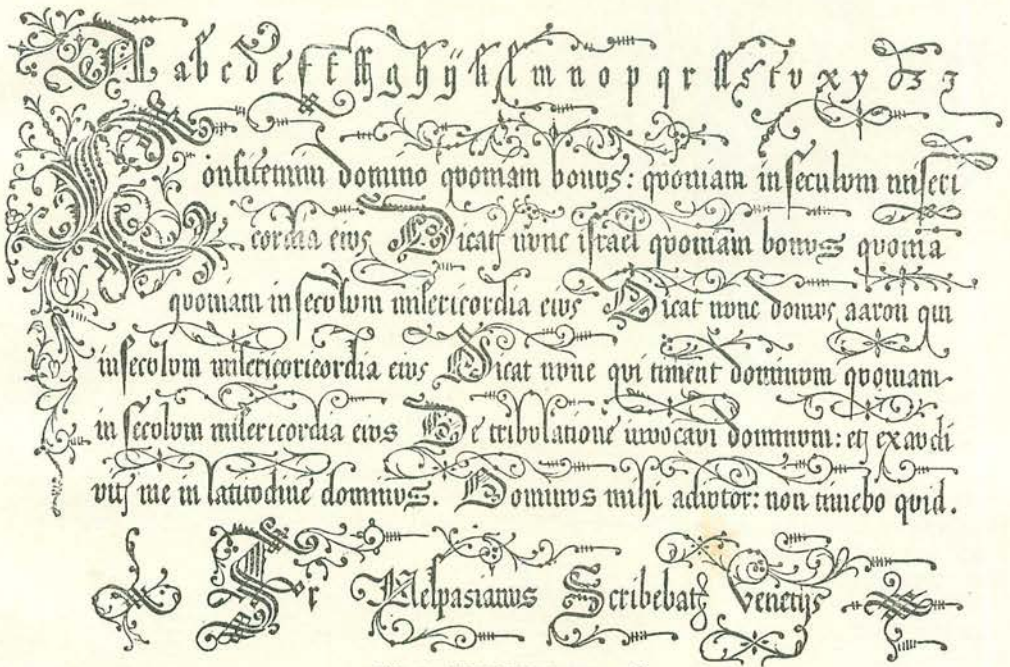 A a b c d e f ff ffi g h ij k l m n o p q r ſſ s t v x y z 3
Confitemini domino qvoniam bonvs: qvoniam in ſecvlvm miſeri
cordia eivs Dicat nvnc iſrael qvoniam bonvs qvonia
qvoniam in ſecvlvm miſericordia eivs Dicat nvnc domvs aaron qui
in ſecvlvm miſericoricordia eivs Dicat nvnc qvi timent dominvm qvoniam
in ſecvlvm miſericordia eivs De tribvlatione invocavi dominvm: et exavdi
vit me in latitvdine dominvs. Dominvs mihi adivtor: non timebo qvid.
Fr Veſpasianvs Scribebat Venetijs